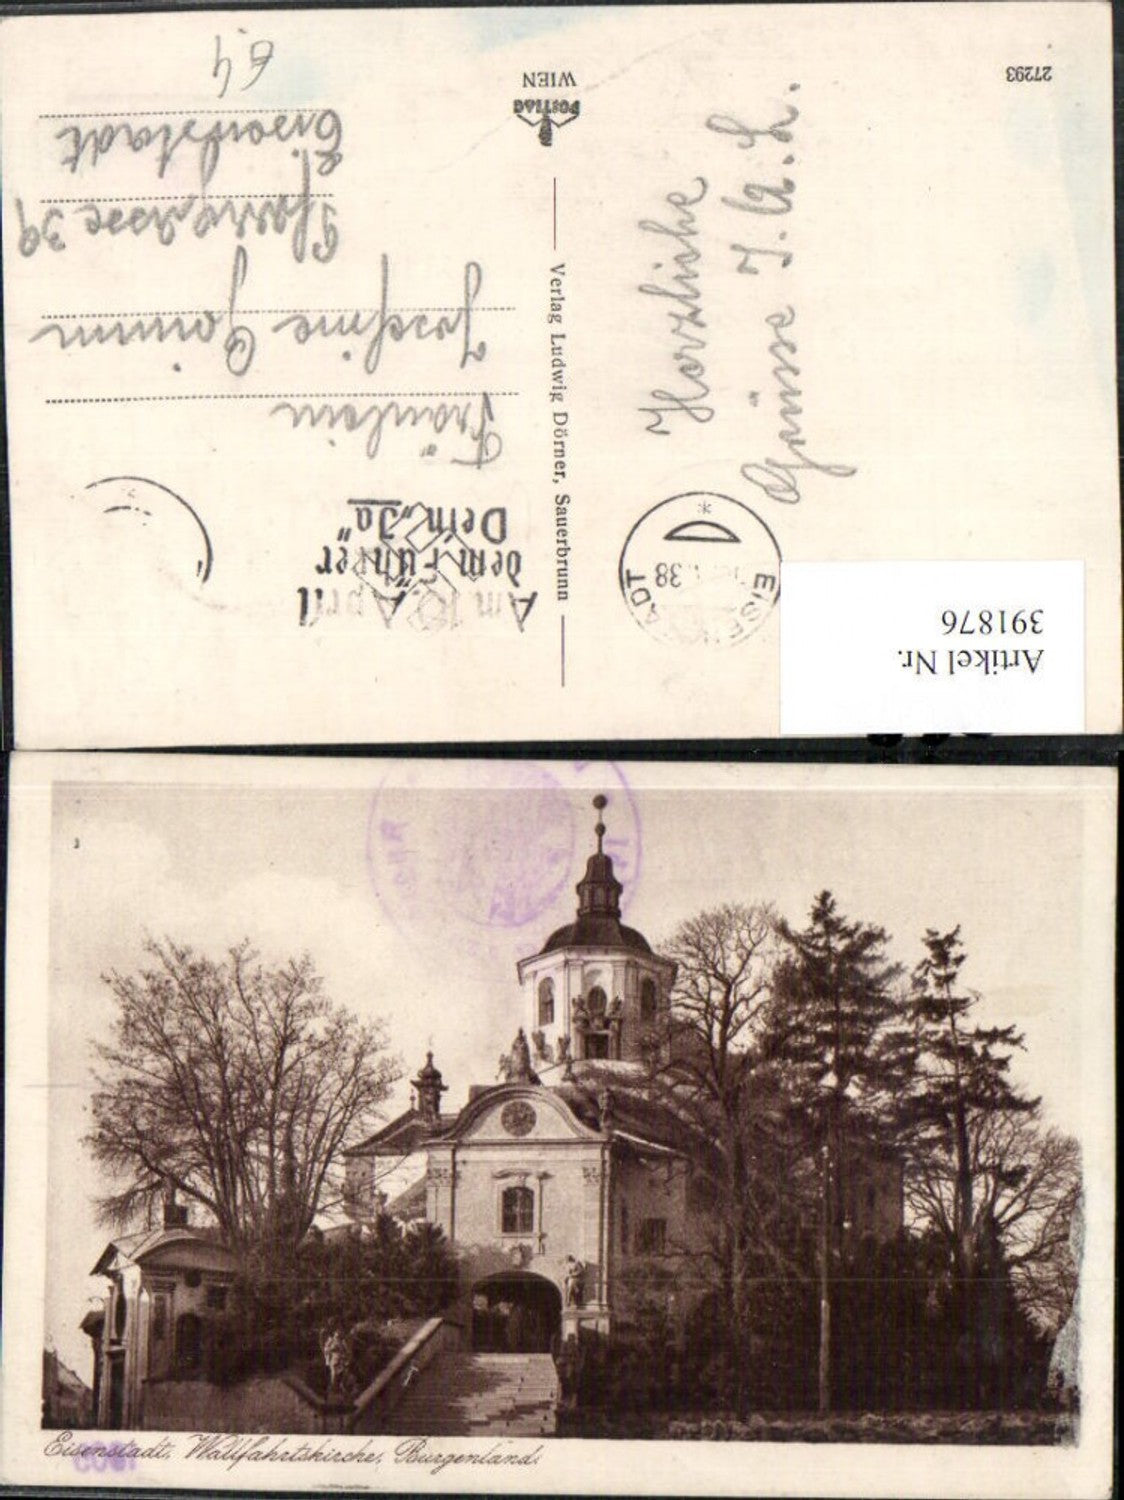 Artikel Nr.
391876
27293
POSTIAG
WIEN
Verlag Ludwig Dörner, Sauerbrunn
Am 10. April
dem Führer
Dein „Ja"
38
Herzliche
Grüsse J. u. L.
Fräulein
Josefine
39
Eisenstadt
Eisenstadt, Wallfahrtskirche, Burgenland.